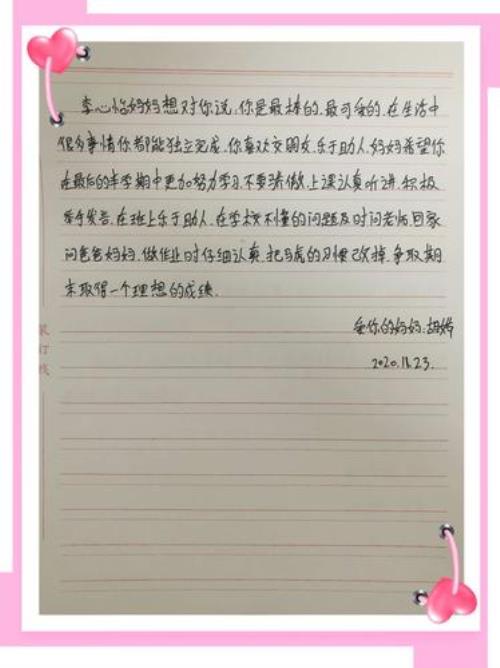 李心怡妈妈想对你说:你是最棒的,最可爱的,在生活中
很多事情你都能独立完成,你喜欢交朋友,乐于助人,妈妈希望你
在最后的半学期中更加努力学习,不要骄傲,上课认真听讲,积极
举手发言,在班上乐于助人,在学校不懂的问题及时问老师,回家
问爸爸妈妈,做作业时仔细认真,把马虎的习惯改掉,争取期
末取得一个理想的成绩.
爱你的妈妈:胡婷
2020.11.23.
装订线